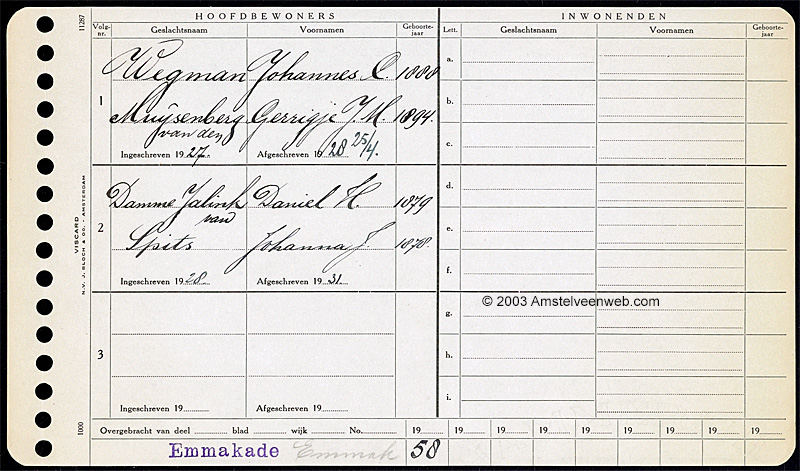 HOOFDBEWONERS
INWONENDEN
Volg-nr. Geslachtsnaam Voornamen Geboorte-jaar Lett. Geslachtsnaam Voornamen Geboorte-jaar
11287
1
Wegman Johannes C. 1888
Muijsenberg Gerrigje J. M. 1894.
van den
Ingeschreven 1927. Afgeschreven 1928 25/4.
a.
b.
c.
2
Damme Jalink Daniel H. 1879
van
Spits Johanna J. 1878.
Ingeschreven 1928. Afgeschreven 1931.
d.
e.
f.
3
Ingeschreven 19 Afgeschreven 19
g.
h.
i.
© 2003 Amstelveenweb.com
VISCARD
N.V. J. BLOCH & Co. - AMSTERDAM
1000
Overgebracht van deel blad wijk No. 19 19 19 19 19 19 19 19 19
Emmakade Emmak 58